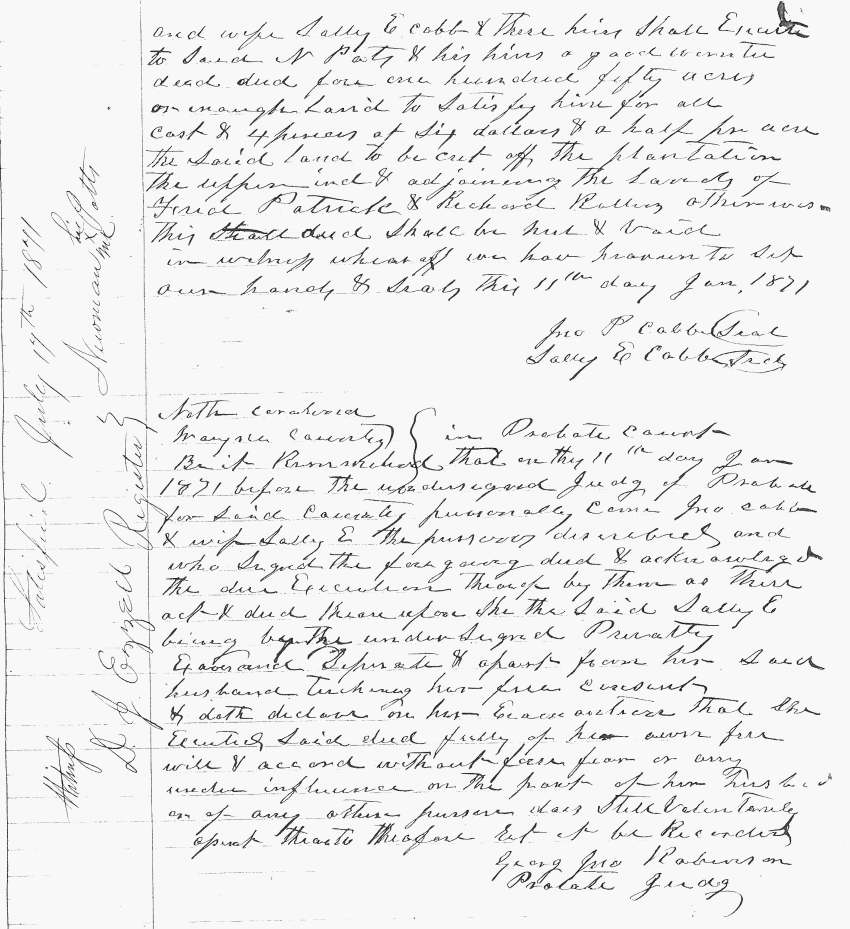 and wife Sally E Cobb & there hirs Shall Execute
to Said N Pots & his hirs a good
dead ded fore one hundred fifty acres
or enough Land to Satisfy him for all
cost & at Six dollars & a half per acre
the Said land to be cut off the plantation
the upper ind & adjoining the Lands of
Patrick & Richard otherwas
this Shall ded Shall be nul & Void
in witness whearoff we hav hearunto Set
our hands & Seals this 11th day Jan, 1871
Jno P Cobb Seal
Sally E Cobb Seal
North
County in Probate Court
Be it that on this 11th day Jan
1871 before the undersigned Judg of Probate
for Said County pursonally Came Jno Cobb
& wife Sally E the discribed and
who Signd the foregoing ded & acknowledged
the due Execution thereof by them as there
act & ded theare upon She the Said Sally E
being by the undersigned Privatly
Seperate & apart from her Said
husband tuching her free Consent
& doth declare on her that She
Said ded fully of her own free
will & accord without fear or any
undue influence on the part of her
or of any other purson does Still
thearto thearfore Let it be Recorded
Georg Jno Robinson
Probate Judg
Satisfied July 19th 1871
Newman his X mk Potts
Witness
D. J Ezzell Register